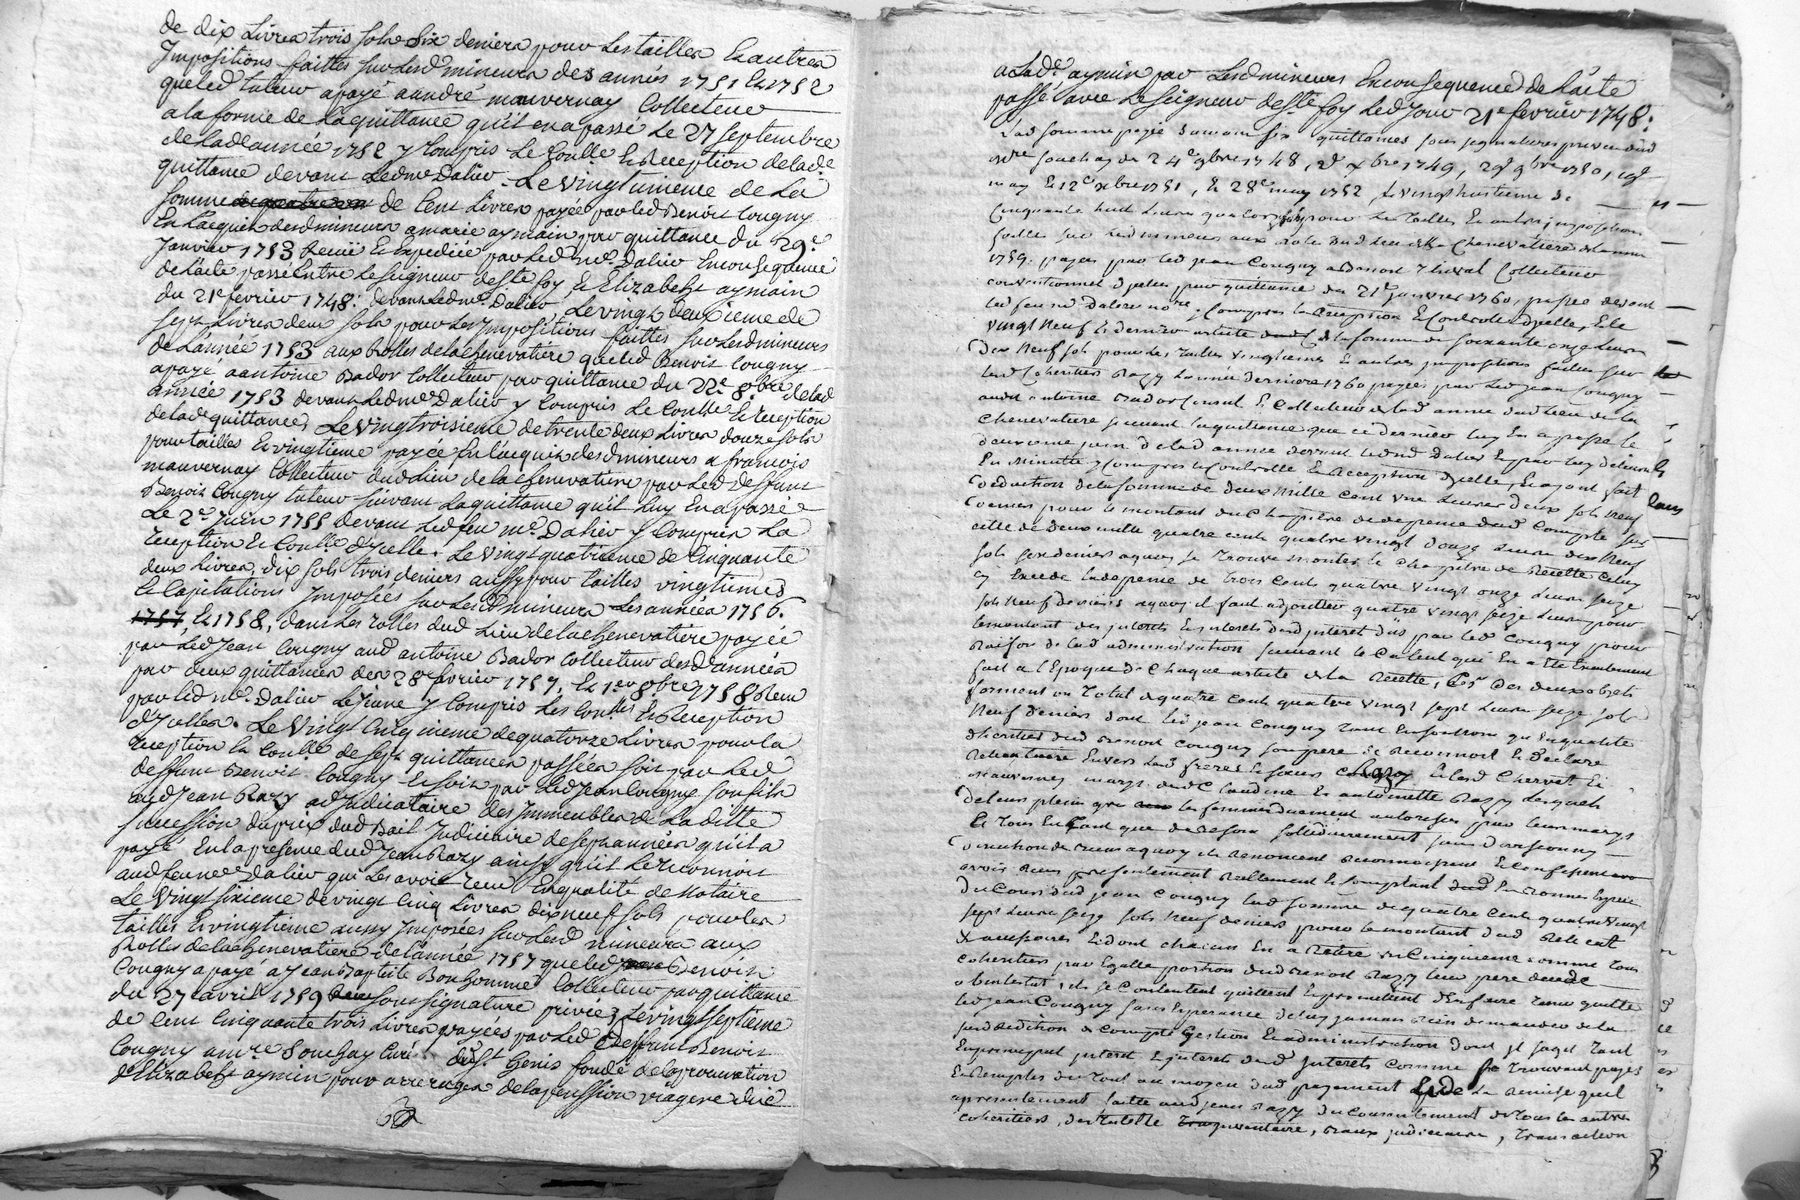 de dix Livres trois sols six deniers pour Les tailles Et autres
Impositions faittes sur Lesd mineurs des années 1751 Et 1752
que led tuteur a payé a andré mauvernay Collecteur
a la forme de La quittance qu'il en a passé Le 27 septembre
de lade année 1752 y Compris Le Conlle Et Reception de lade
quittance devant Led me Dalier. Le Vingtunieme de La
somme de Cent Livres payée par led Benoit Cougny
En L'acquit desd mineurs a marie aymain par quittance du 29e
Janvier 1753 Receüe Et Expediée par Led me Dalier En consequence
de L'acte passé Entre Le seigneur de ste foy, Et Elizabeth aymain
du 21e fevrier 1748: devant Led me Dalier, Le vingt deuxieme de
sept Livres deux sols pour Les Impositions faittes sur Lesd mineurs
de L'année 1753 aux Rolles de la Chenevatiere que led Benoit Cougny
a payé a antoine Bador Collecteur par quittance du 22e 8bre de lad
année 1753 devant Led me Dalier y Compris Le Conlle Et reception
de lade quittance, Le Vingtroisieme de trente deux Livres douze sols
pour tailles Et vingtieme payée En L'acquit desd mineurs a francois
mauvernay Collecteur dud Lieu de la Chenevatiere par Led deffunt
Benoit Cougny tuteur suivant La quittance qu'il Luy En a passé
Le 2e Juin 1755 devant Led feu me Dalier y Compris La
reception Et Conlle d'ycelle. Le Vingt quatrieme de Cinquante
deux Livres, dix sols trois deniers aussy pour tailles vingtiemes
Et Capitations Imposées sur Lesd mineurs Les années 1756.
1757, Et 1758, dans Les rolles dud Lieu de la Chenevatiere payée
par Led Jean Cougny aud antoine Bador Collecteur desd années
par deux quittances des 28e fevrier 1757, Et 1er 8bre 1758 Receu
par led me Dalier Le Jeune y Compris Les Conlles Et Reception
d'ycelles. Le Vingt Cinquieme de quatorze Livres pour la
reception Et Conlle de sept quittances passées soit par Led
deffunt Benoit Cougny Et soit par Led Jean Cougny son fils
aud Jean Razy adjudicataire des Immeubles de La ditte
succession du prix dud Bail Judiciaire de sept années qu'il a
payé En la presence dud Jean Razy ainsy qu'il Le reconnoit
aud feu me Dalier qui Les avoit receu En qualité de Notaire
Le Vingt sixieme de vingt Cinq Livres dix neuf sols pour les
tailles Et vingtieme aussy Imposées sur Lesd mineurs aux
Rolles de la Chenevatiere de L'année 1757 que led Benoit
Cougny a payé a Jean Baptiste Bonhomme Collecteur par quittance
du 27 avril 1759 sous signature privée, Le vingt septieme
de Cent Cinquante trois Livres payées par Led deffunt Benoit
Cougny a mre Souchay Curé de st Genis fondé de la procuration
d'Elizabeth aymin pour arrerages de la penssion viagere due
a Lade aymin par Lesd mineurs En consequence de L'acte
passé avec Le seigneur de ste foy Led Jour 21e fevrier 1748:
Lad somme payée quittances sous signatures privées dud
mre Souchay du 24e 9bre 1748, xbre 1749, 29e 9bre 1750,
may Et 12e xbre 1751, Et 28e may 1752, Le vingt huitieme de
Cinquante huit Livres pour Les tailles Et autres impositions
faittes sur Lesd mineurs aux Rolles dud Lieu de la Chenevatiere de l'année
1759. payées par led jean Cougny Collecteur
par quittance du 21e janvier 1760, passée devant
led feu me Dalier y Compris la Reception Et Controlle d'ycelle, Et le
Vingt Neuf Et dernier article de la somme de soixante onze Livres
dix Neuf sols pour Les tailles vingtieme Et autres impositions faittes sur
Lesd Coheritiers Razy L'année derniere 1760 payées par Led jean Cougny
aud antoine Bador Et Collecteur de lad année dud Lieu de la
Chenevatiere suivant la quittance que ce dernier luy En a passé le
deuxieme juin de lad année devant led me Dalier
En Minutte y Compris le Controlle Et Reception d'ycelle, Et ayant fait
deduction de la somme de deux mille cent une Livres deux sols Neuf
deniers pour le montant du Chapitre de depense dud Compte sur
celle de deux mille quatre cents quatre vingt douze Livres dix Neuf
sols six deniers aquoy se trouve monter le Chapitre de Recette Celuy
cy Excede La depense de trois Cents quatre vingt onze Livres seize
sols Neuf deniers aquoy il faut adjoutter quatre vingt seize Livres pour
le montant des jnterets Et jnterets d'jnterets dus par led Cougny pour
Raison de lad administration suivant le Calcul qui En a été
fait a l'Epoque de Chaque article de la Recette, Les deux objets
forment un Total de quatre Cents quatre vingt sept Livres seize sols
Neuf deniers dont led jean Cougny tant En son nom qu'En qualité
d'heritier dud Benoit Cougny son pere se Reconnoit Et declare
Reliquataire Envers Lesd freres Et sœurs Razy Et led Chervet Et
Mauvernay marys desd Claudine Et antoinette Razy Lesquels
de leur plein gré Et les femmes duement autorisées par leurs marys
Et tous En tant que de Raison sollidairement sans division ny
au moyen de quoy ils Reconnoissent Et Confessent
avoir Receu presentement Reellement Et Comptant En Bonnes Especes
du Cours dud jean Cougny lad somme de quatre Cents quatre vingt
sept Livres seize sols Neuf deniers pour le montant dud Reliquat
Et accessoires Et dont chacun En a Retiré un Cinquieme comme tous
coheritiers par Egalle portion dud Benoit Razy leur pere decedé
ab intestat, ils se Contentent quittent Et promettent d'En faire tenir quitte
led jean Cougny sans Esperance de luy jamais Rien demander de la
susd Reddition de Compte Gestion Et administration dont jl s'agit tant
En principal jnterets Et jnterets d'Interets Comme se trouvant payés
Et Remplis du tout au moyen dud payement Et de La Remise qu'il
a presentement faitte aud jean Razy du Consentement de tous les autres
coheritiers, de la tutelle inventaire, Baux judiciaires, transaction